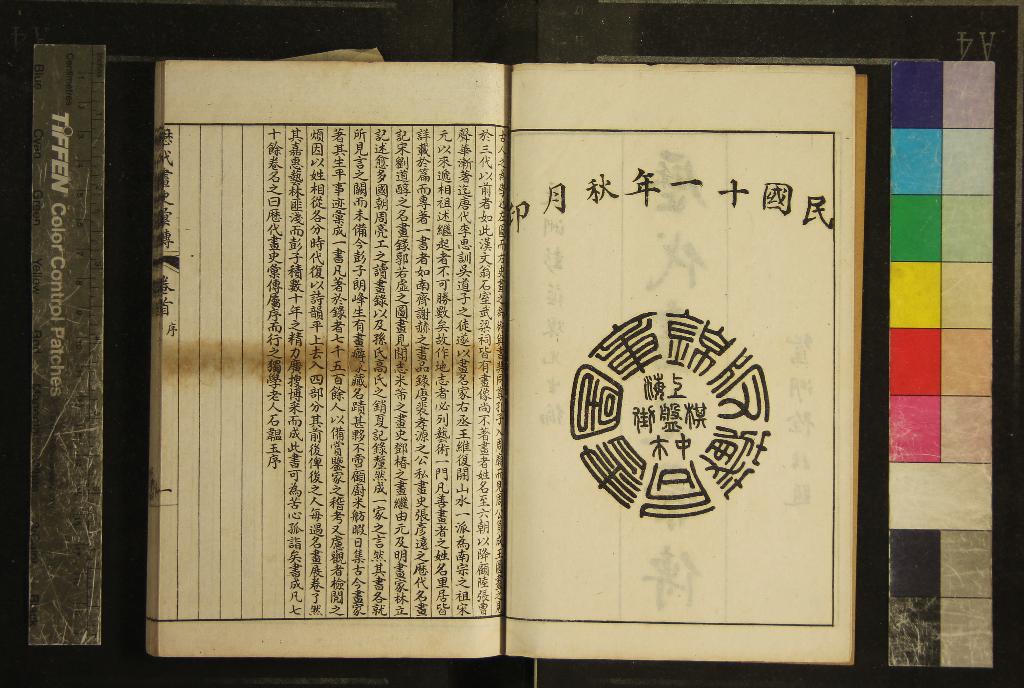 民國十一年秋月印
錦章圖書局藏版
上海
棋盤街
中
於三代以前者如此漢文翁石室武梁祠皆有畫像尚不著畫者姓名至六朝以降顧陸張曹
聲華漸著迄唐代李思訓吳道子之徒遂以畫名家右丞王維復開山水一派為南宗之祖宋
元以來遞相祖述繼起者不可勝數矣故作地志者必列藝術一門凡善畫者之姓名里居皆
詳載於篇而專著一書者如南齊謝赫之書品錄唐裴孝源之公私畫史張彥遠之歷代名畫
記宋劉道醇之名畫錄郭若虛之圖畫見聞志米芾之畫史鄧椿之畫繼由元及明畫家林立
記述愈多國朝周亮工之讀畫錄以及孫氏高氏之銷夏記錄釐然成一家之言然其書各就
所見言之闕而未備今彭子朗峰生有畫癖家藏名蹟甚夥不啻顧廚米舫暇日集古今畫家
著其生平事迹彙成一書凡著於錄者七千五百餘人以備賞鑒家之稽考又慮觀者檢閱之
煩因以姓相從各分時代復以詩韻平上去入四部分其前後俾後之人每過名畫展卷了然
其嘉惠藝林匪淺而彭子積數十年之精力廣搜博采而成此書可為苦心孤詣矣書成凡七
十餘卷名之曰歷代畫史彙傳屬序而行之獨學老人石韞玉序
歷代畫史彙傳 卷首 序 一
TIFFEN Color Control Patches
A4